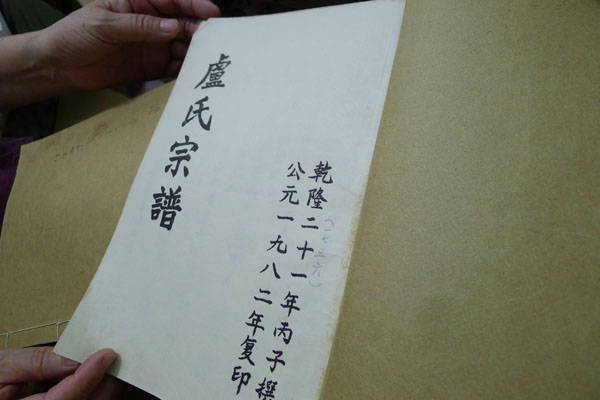 盧氏宗譜
乾隆二十一年丙子撰
(一七五六)
公元一九八二年复印